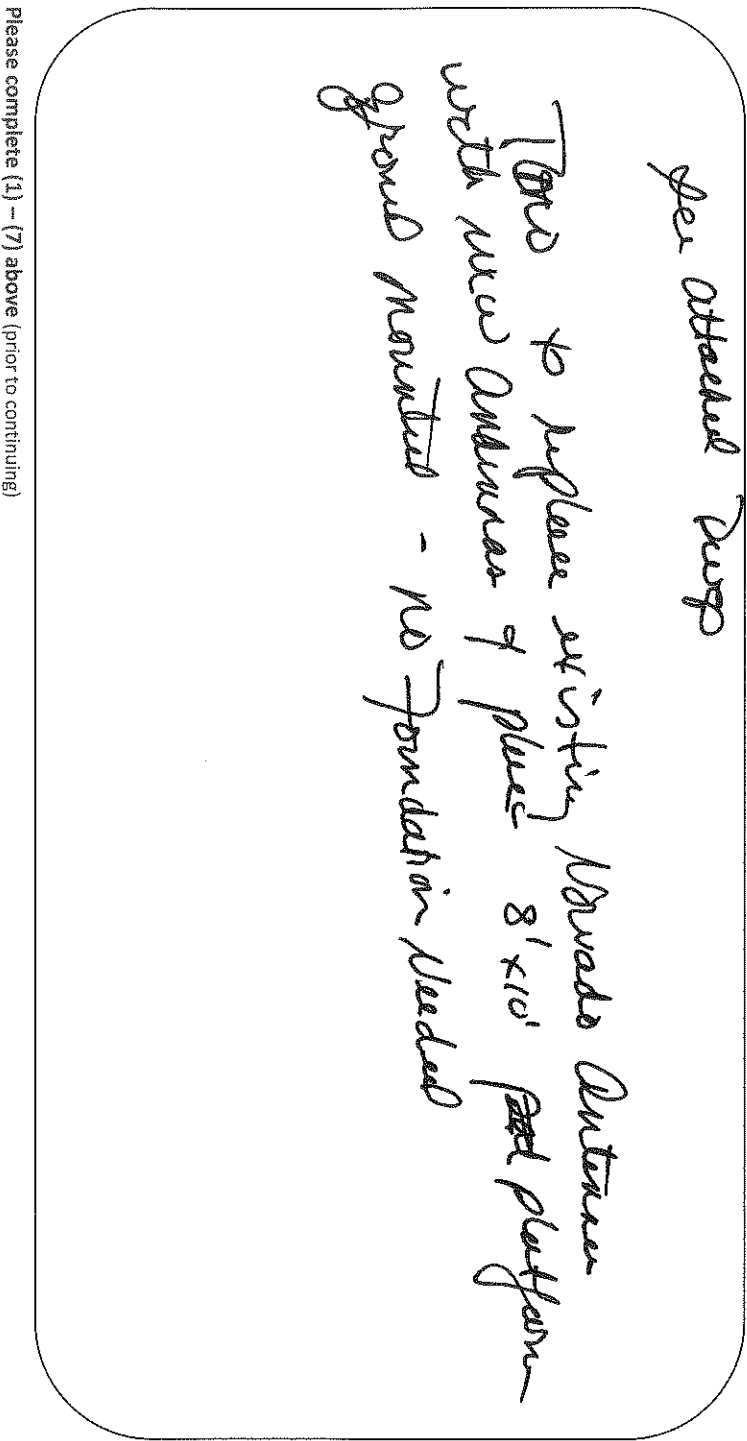 See attached Dwgs
to replace existing Antennas
with new antennas & place 8'x10' platform
ground mounted - no Foundation Needed
Please complete (1) – (7) above (prior to continuing)